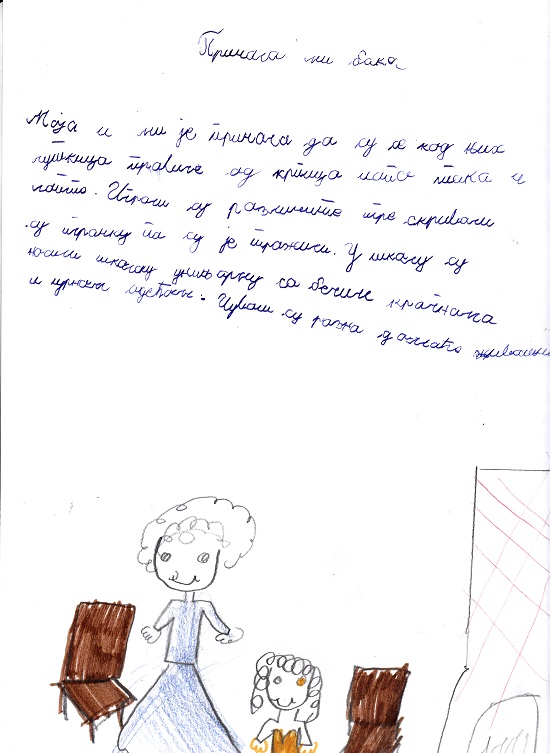 Причала ми бака
Моја и ми је причала да су се код њих
правиле од крпица
Играли су различите игре скривали
су играчку па су је тражили. У школу су
носили школску униформу са белим крагнама
и црном одећом. Чували су разна домаће животиње